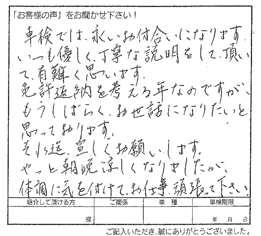 「お客様の声」をお聞かせ下さい!
車検では、永いお付合いになります。
いつも優しく、丁寧な説明をして、頂い
て、有難く思います。
免許返納を考える年なのですが、
もうしばらく、お世話になりたいと
思っております。
その迄、宜しくお願いします。
やっと朝晩涼しくなりましたが、
体調に気を付けてお仕事、頑張って下さい
紹介して頂ける方
ご関係
車種
車検期限
様
年 月 日
ご記入いただき、誠にありがとうございました。